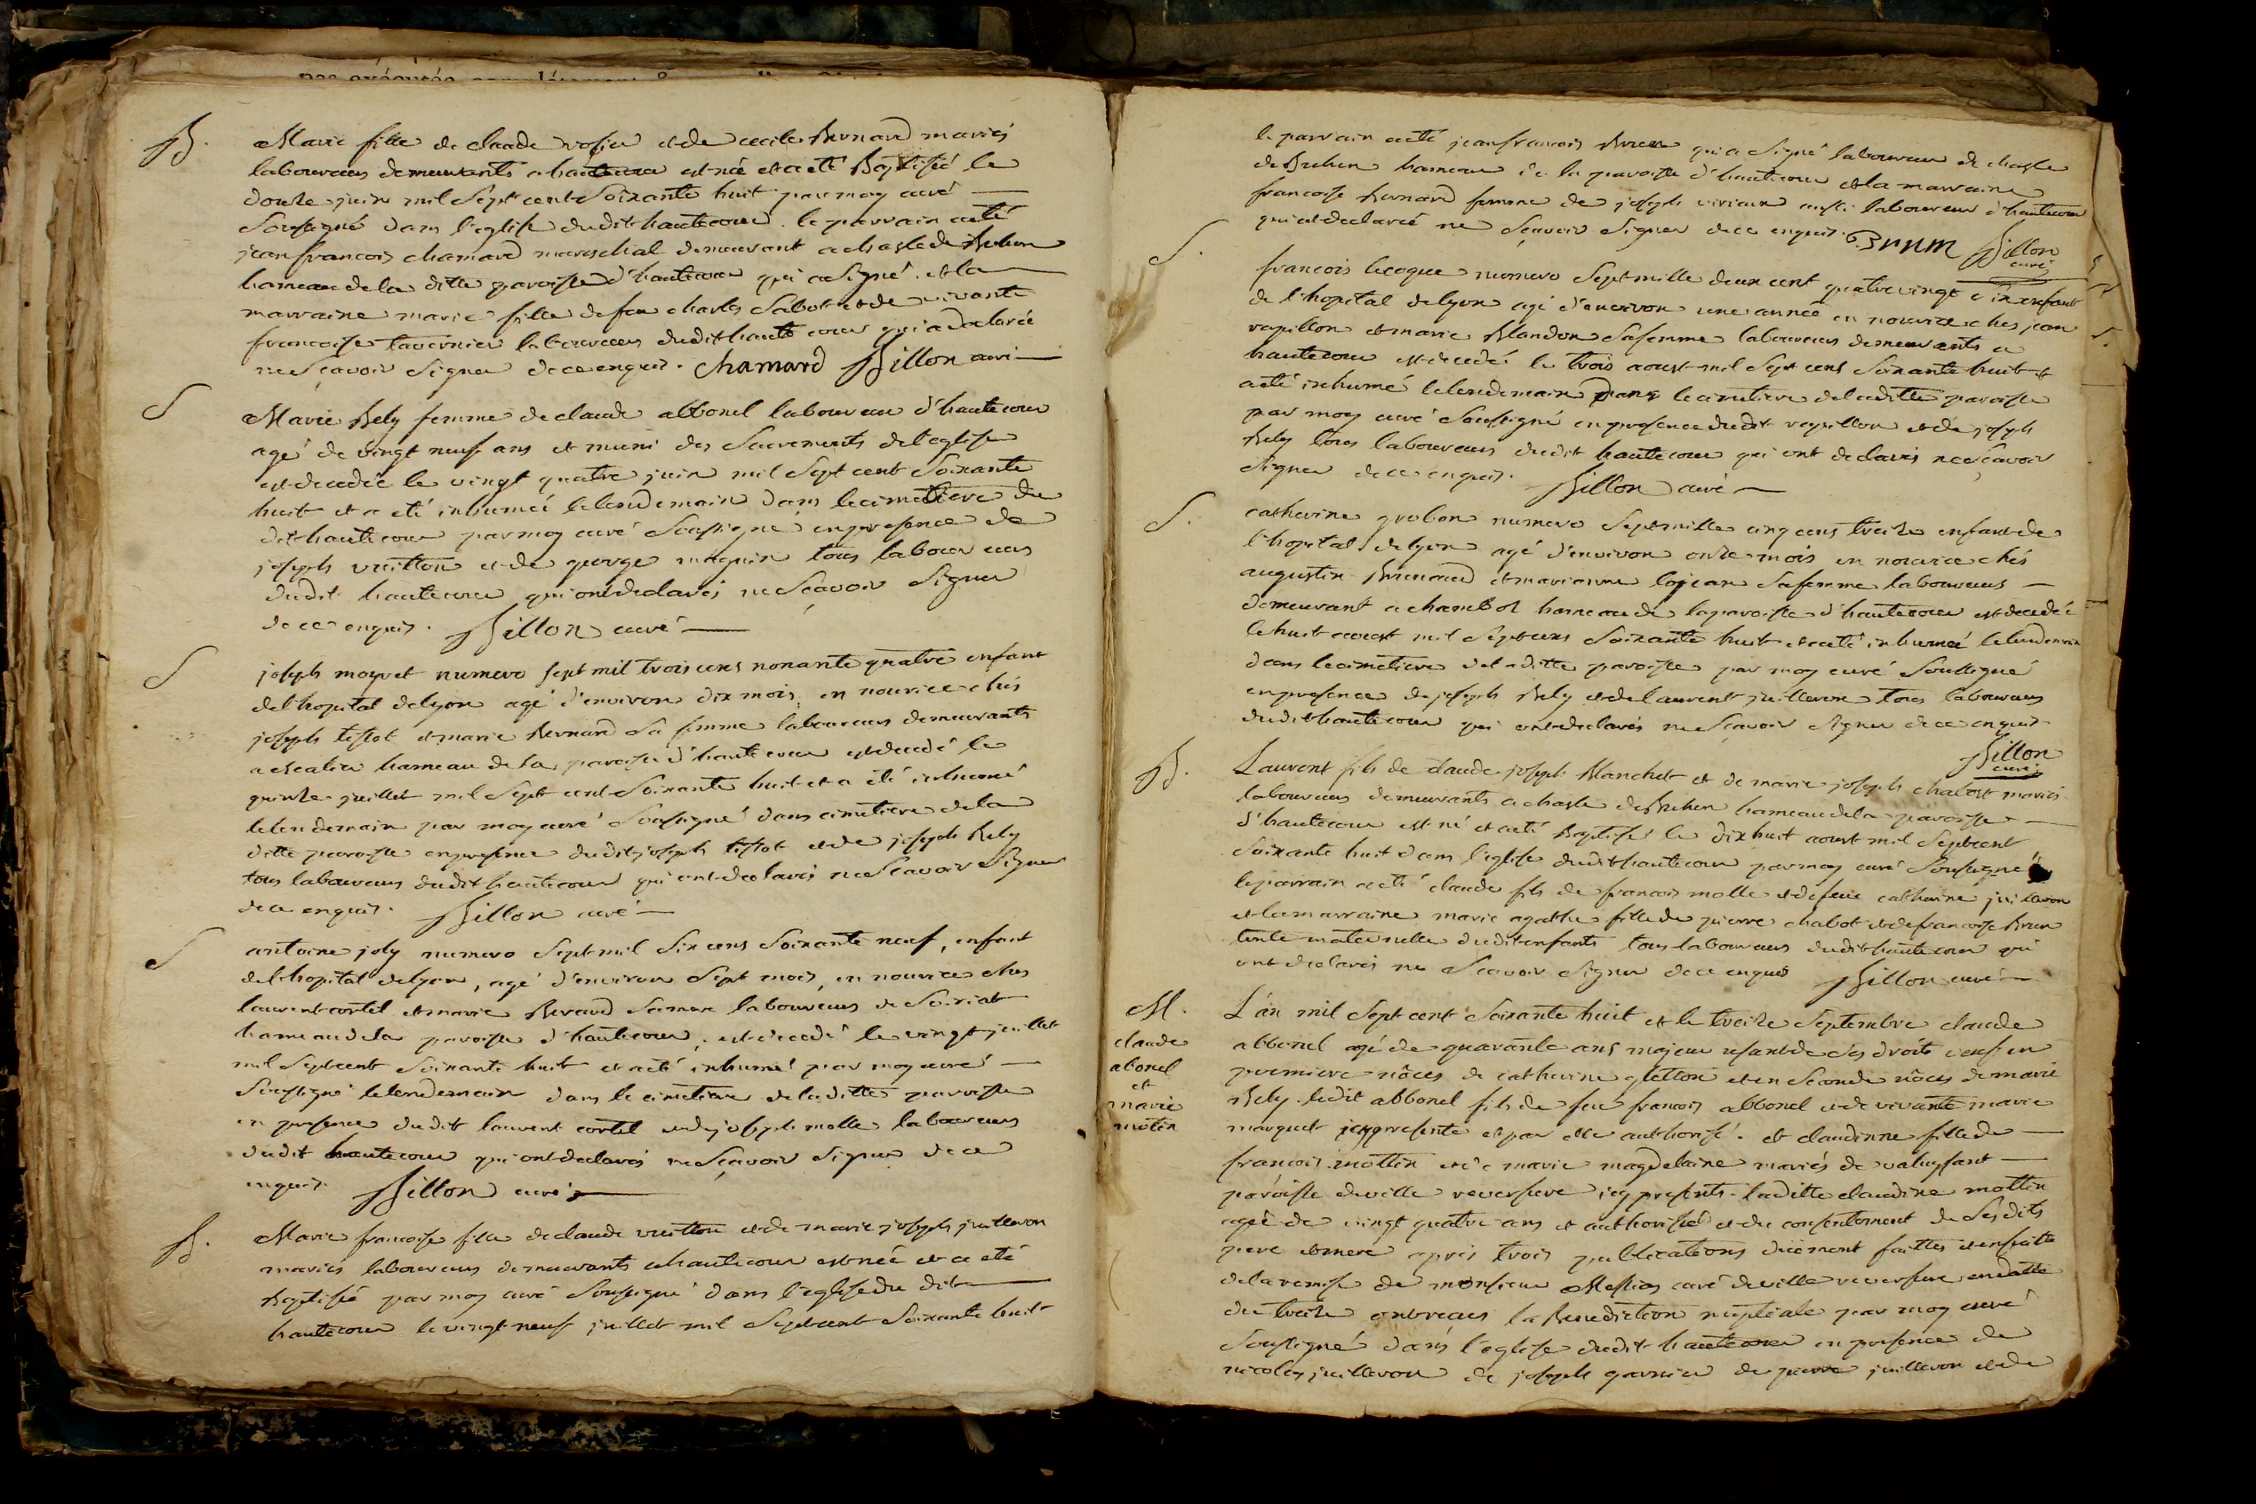 B.
Marie fille de claude rosier et de cecile Bernard mariés
laboureurs demeurants a hautecour est née et a eté Baptisée le
douze juin mil Sept cent Soixante huit par moy curé
Sousigné dans l'eglise dudit hautecour. le parrain a eté
jean francois chamard mareschal demeurant a chasle de Brehen
hameau de la ditte paroisse d'hautecour qui a Signé. et la
marraine marie fille de feu charles Sabot et de vivante
francoise tavernier laboureurs dudit haute cour qui a declarée
ne Sçavoir Signer de ce enquis. chamard Billon curé
S
Marie Bely femme de claude abbonel laboureur d'hautecour
agé de vingt neuf ans et muni des Sacrements de l'eglise
est decedée le vingt quatre juin mil Sept cent Soixante
huit et a eté inhumée le lendemain dans le cimetiere du
dit hautecour par moy curé Soussigné en presence de
joseph vuitton et de george maguin tous laboureurs
dudit hautecour qui ont declarés ne Sçavoir Signer
de ce enquis. Billon curé
S
joseph moyret numero sept mil trois cens nonante quatre enfant
de l'hopital de lyon agé d'environ dix mois, en nourice chés
joseph tissot et marie Bernard Sa femme laboureurs demeurants
a hameau de la paroisse d'hautecour est decedé le
quinze juillet mil Sept cent Soixante huit et a eté inhumé
le lendemain par moy curé Soussigné dans cimetiere de la
ditte paroisse en presence dudit joseph tissot et de joseph Bely
tous laboureurs dudit hautecour qui ont declarés ne Scavoir Signer
de ce enquis. Billon curé
S
antoine joly numero Sept mil Six cens Soixante neuf, enfant
de l'hopital de lyon, agé d'environ Sept mois, en nourice ches
laurent cortel et marie Berard Sa femme laboureurs de Soiriat
hameau de la paroisse d'hautecour, est decedé le vingt juillet
mil Sept cent Soixante huit et a eté inhumé par moy curé
Soussigné le lendemain dans le cimetiere de laditte paroisse
en presence dudit laurent cortel et de joseph molle laboureurs
dudit hautecour qui ont declarés ne Sçavoir Signer de ce
enquis. Billon curé
B.
Marie francoise fille de claude vuitton et de marie joseph juilleron
mariés laboureurs demeurants a hautecour est née et a eté
Baptisée par moy curé Sousigné dans l'eglise du dit
hautecour le vingt neuf juillet mil Sept cent Soixante huit
le parrain a eté jean francois Brun qui a Signé laboureur de chasle
de Brehen hameau de la paroisse d'hautecour et la marraine
francoise Bernard femme de joseph aussi laboureur d'hautecour
qui a declarée ne Sçavoir Signer de ce enquis. Brun Billon
curé
S.
francois lecoque numero Sept mille deux cent quatre vingt enfant
de l'hopital de lyon agé d'environ une année en nourice ches jean
rapillon et marie Blandon Sa femme laboureurs demeurants a
hautecour est decedé le trois aoust mil Sept cens Soixante huit et
a eté inhumé le lendemain dans le cimetiere de laditte paroisse
par moy curé Soussigné en presence dudit rapillon et de joseph
Bely tous laboureurs dudit hautecour qui ont declarés ne Scavoir
Signer de ce enquis. Billon curé
S.
catherine grobon numero Sept mille cinq cens treize enfant de
l'hopital de lyon agé d'environ onze mois en nourice chés
augustin Brenard et marianne lojean Sa femme laboureurs
demeurant a chambol hameau de la paroisse d'hautecour est decedée
le huit aoust mil Sept cens Soixante huit et a eté inhumée le lendemain
dans le cimetiere de laditte paroisse par moy curé Soussigné
en presence de joseph Bely et de laurent juilleron tous laboureurs
dudit hautecour qui ont declarés ne Sçavoir Signer de ce enquis
Billon
curé
B.
Laurent fils de claude joseph Blanchet et de marie joseph chabot mariés
laboureurs demeurants a chasle de Brehen hameau de la paroisse
d'hautecour est né et a eté Baptisé le dix huit aoust mil Sept cent
Soixante huit dans l'eglise dudit hautecour par moy curé Sousigné
le parrain a eté claude fils de francois molle et de feue catherine juilleron
et la marraine marie agathe fille de pierre chabot et de francoise Brun
tente maternelle dudit enfant tous laboureurs dudit hautecour qui
ont declarés ne Scavoir Signer de ce enquis Billon curé
M.
claude
abonel
et
marie
motin
L'an mil Sept cent Soixante huit et le treize Septembre claude
abbonel agé de quarante ans majeur usant de Ses droits veuf en
premiere nôces de catherine gletton et en Seconde nôces de marie
Bely. ledit abbonel fils de feu francois abbonel et de vivante marie
marquet icy presente et par elle authorisé. et claudinne fille de
francois mottin et de marie magdelaine mariés de valuysant
paroisse de ville reversure icy presents. laditte claudine mottin
agée de vingt quatre ans et authorisée et du consentement de Ses dits
pere et mere apres trois publications duement faittes et ensuitte
de la remise de monsieur Messias curé de ville reversure en datte
du treize ont reçus la Benediction nuptiale par moy curé
Sousigné dans l'eglise dudit hautecour en presence de
nicolas juilleron de joseph garnier de pierre juilleron et de